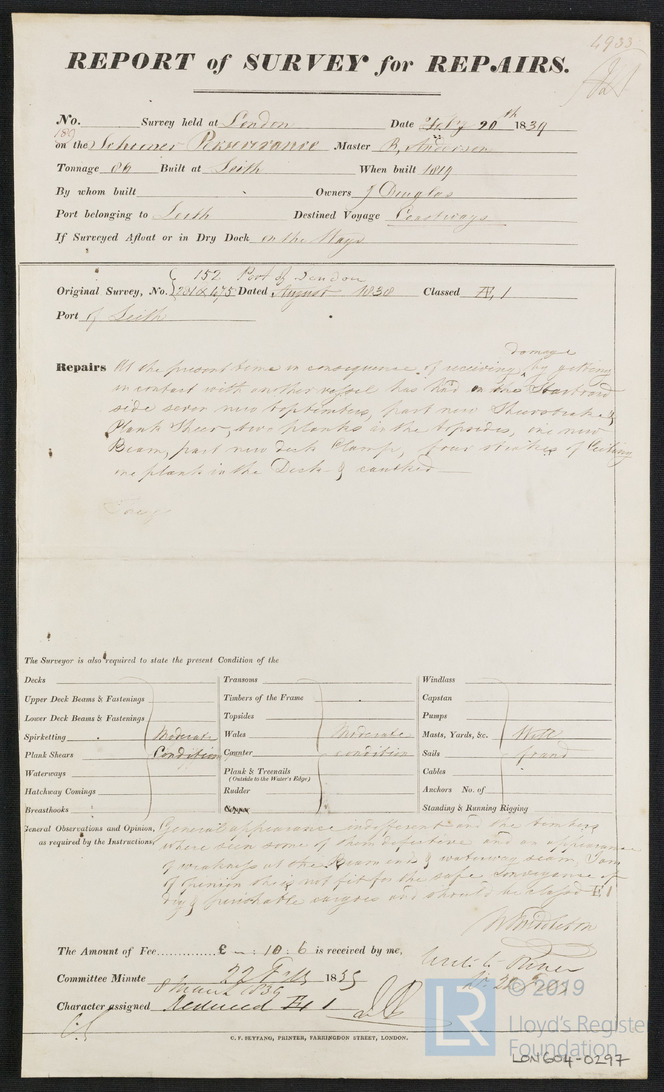 4933
REPORT of SURVEY for REPAIRS.
No. Survey held at London Date Feby 20th 1839
on the Schooner Perseverance Master R, Anderson
Tonnage 86 Built at Leith When built 1819
By whom built Owners J Douglas
Port belonging to Leith Destined Voyage Coastways
If Surveyed Afloat or in Dry Dock on the Ways
152 Port of London
Original Survey, No. 231 & 475 Dated August 1838 Classed Æ 1
Port of Leith
damage
Repairs At the present time in consequence of receiving by getting
in contact with another vessel has had on the Starboard
side seven new toptimbers, part new Sheerstrake &
Plank Sheer, two planks in the topsides, one new
Beam, part new deck Clamp, four strakes of Ceiling
one plank in the Deck & caulked
The Surveyor is also required to state the present Condition of the
Decks Transoms Windlass
Upper Deck Beams & Fastenings Timbers of the Frame Capstan
Lower Deck Beams & Fastenings Topsides Pumps
Spirketting Moderate Wales Moderate Masts, Yards, &c. Well
Plank Shears Condition Counter condition Sails found
Waterways Plank & Treenails Cables
(Outside to the Water's Edge)
Hatchway Comings Rudder Anchors No. of
Breasthooks Standing & Running Rigging
General Observations and Opinion, General appearance indifferent and the timbers
as required by the Instructions, where seen some of them defective and an appearance
of weakness at the Beam ends & waterway seam, I am
of opinion she is not fit for the safe conveyance of
dry & perishable cargoes and should be classed E 1
W Middleton
The Amount of Fee £ – : 10 : 6 is received by me,
Committee Minute 22 Feby 1839
8 March 1839
Character assigned Reduced Æ 1
C. F. SEYFANG, PRINTER, FARRINGDON STREET, LONDON.
LR © 2019
Lloyd's Register
Foundation
LON604-0297